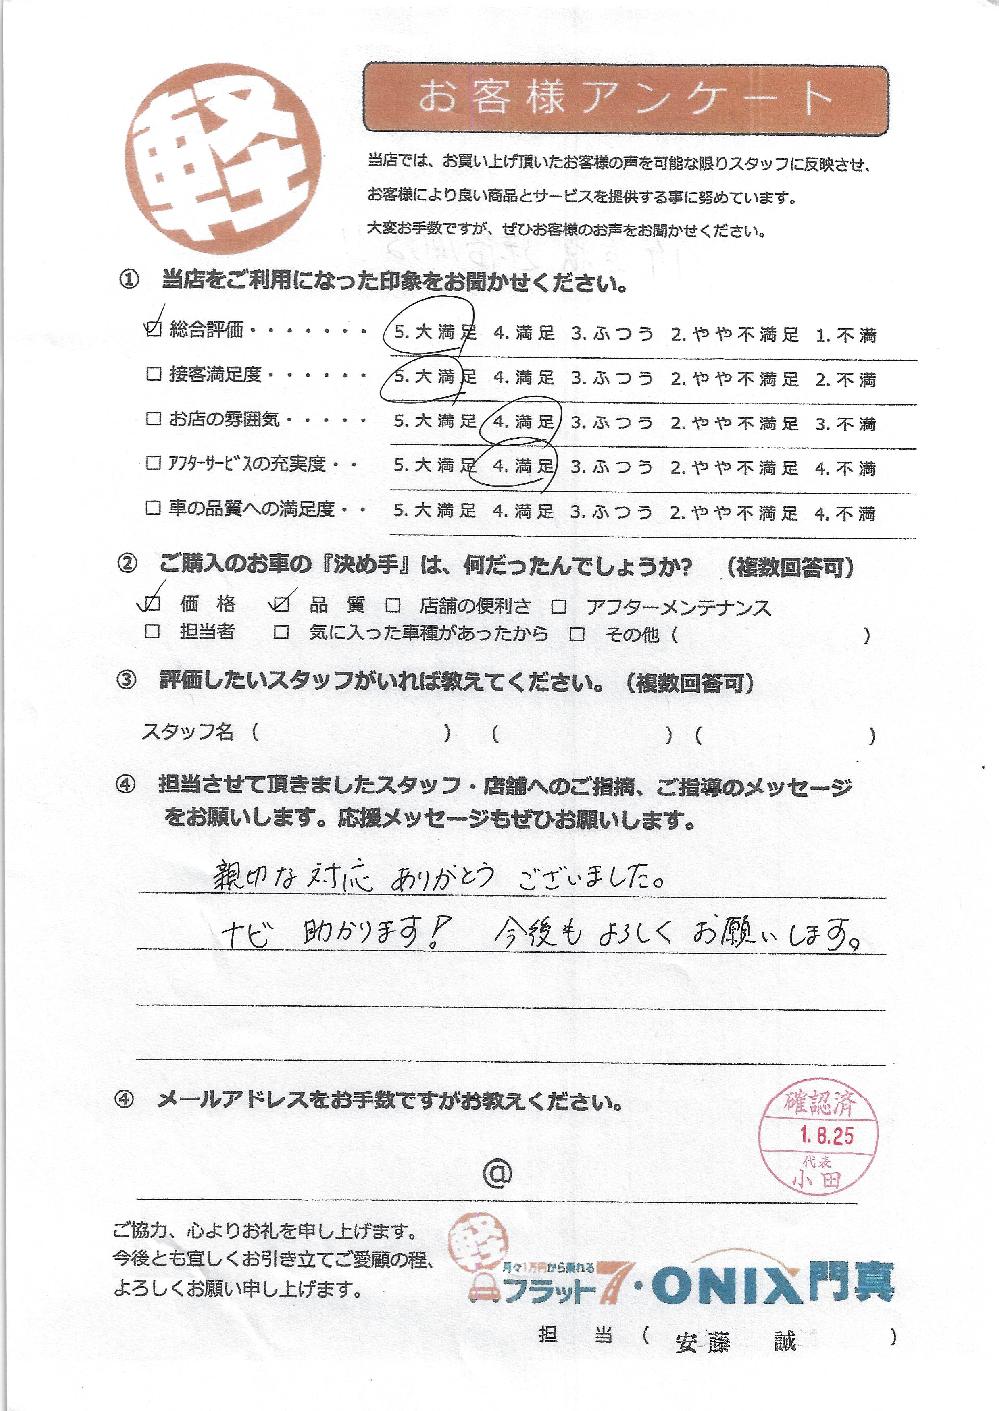 軽
お客様アンケート
当店では、お買い上げ頂いたお客様の声を可能な限りスタッフに反映させ、
お客様により良い商品とサービスを提供する事に努めています。
大変お手数ですが、ぜひお客様のお声をお聞かせください。
① 当店をご利用になった印象をお聞かせください。
☑ 総合評価・・・・・・・ 5.大満足 4.満足 3.ふつう 2.やや不満足 1.不満
□ 接客満足度・・・・・・ 5.大満足 4.満足 3.ふつう 2.やや不満足 2.不満
□ お店の雰囲気・・・・・ 5.大満足 4.満足 3.ふつう 2.やや不満足 3.不満
□ ｱﾌﾀｰｻｰﾋﾞｽの充実度・・ 5.大満足 4.満足 3.ふつう 2.やや不満足 4.不満
□ 車の品質への満足度・・ 5.大満足 4.満足 3.ふつう 2.やや不満足 4.不満
② ご購入のお車の『決め手』は、何だったんでしょうか? （複数回答可）
☑ 価格 ☑ 品質 □ 店舗の便利さ □ アフターメンテナンス
□ 担当者 □ 気に入った車種があったから □ その他（ ）
③ 評価したいスタッフがいれば教えてください。（複数回答可）
スタッフ名（ ） （ ）（ ）
④ 担当させて頂きましたスタッフ・店舗へのご指摘、ご指導のメッセージ
をお願いします。応援メッセージもぜひお願いします。
親切な対応 ありがとう ございました。
ナビ 助かります! 今後も よろしく お願いします。
④ メールアドレスをお手数ですがお教えください。
確認済
1.8.25
代表
小田
@
ご協力、心よりお礼を申し上げます。
今後とも宜しくお引き立てご愛顧の程、
よろしくお願い申し上げます。
軽
月々1万円から乗れる
フラット7・ONIX門真
担当（ 安藤 誠 ）